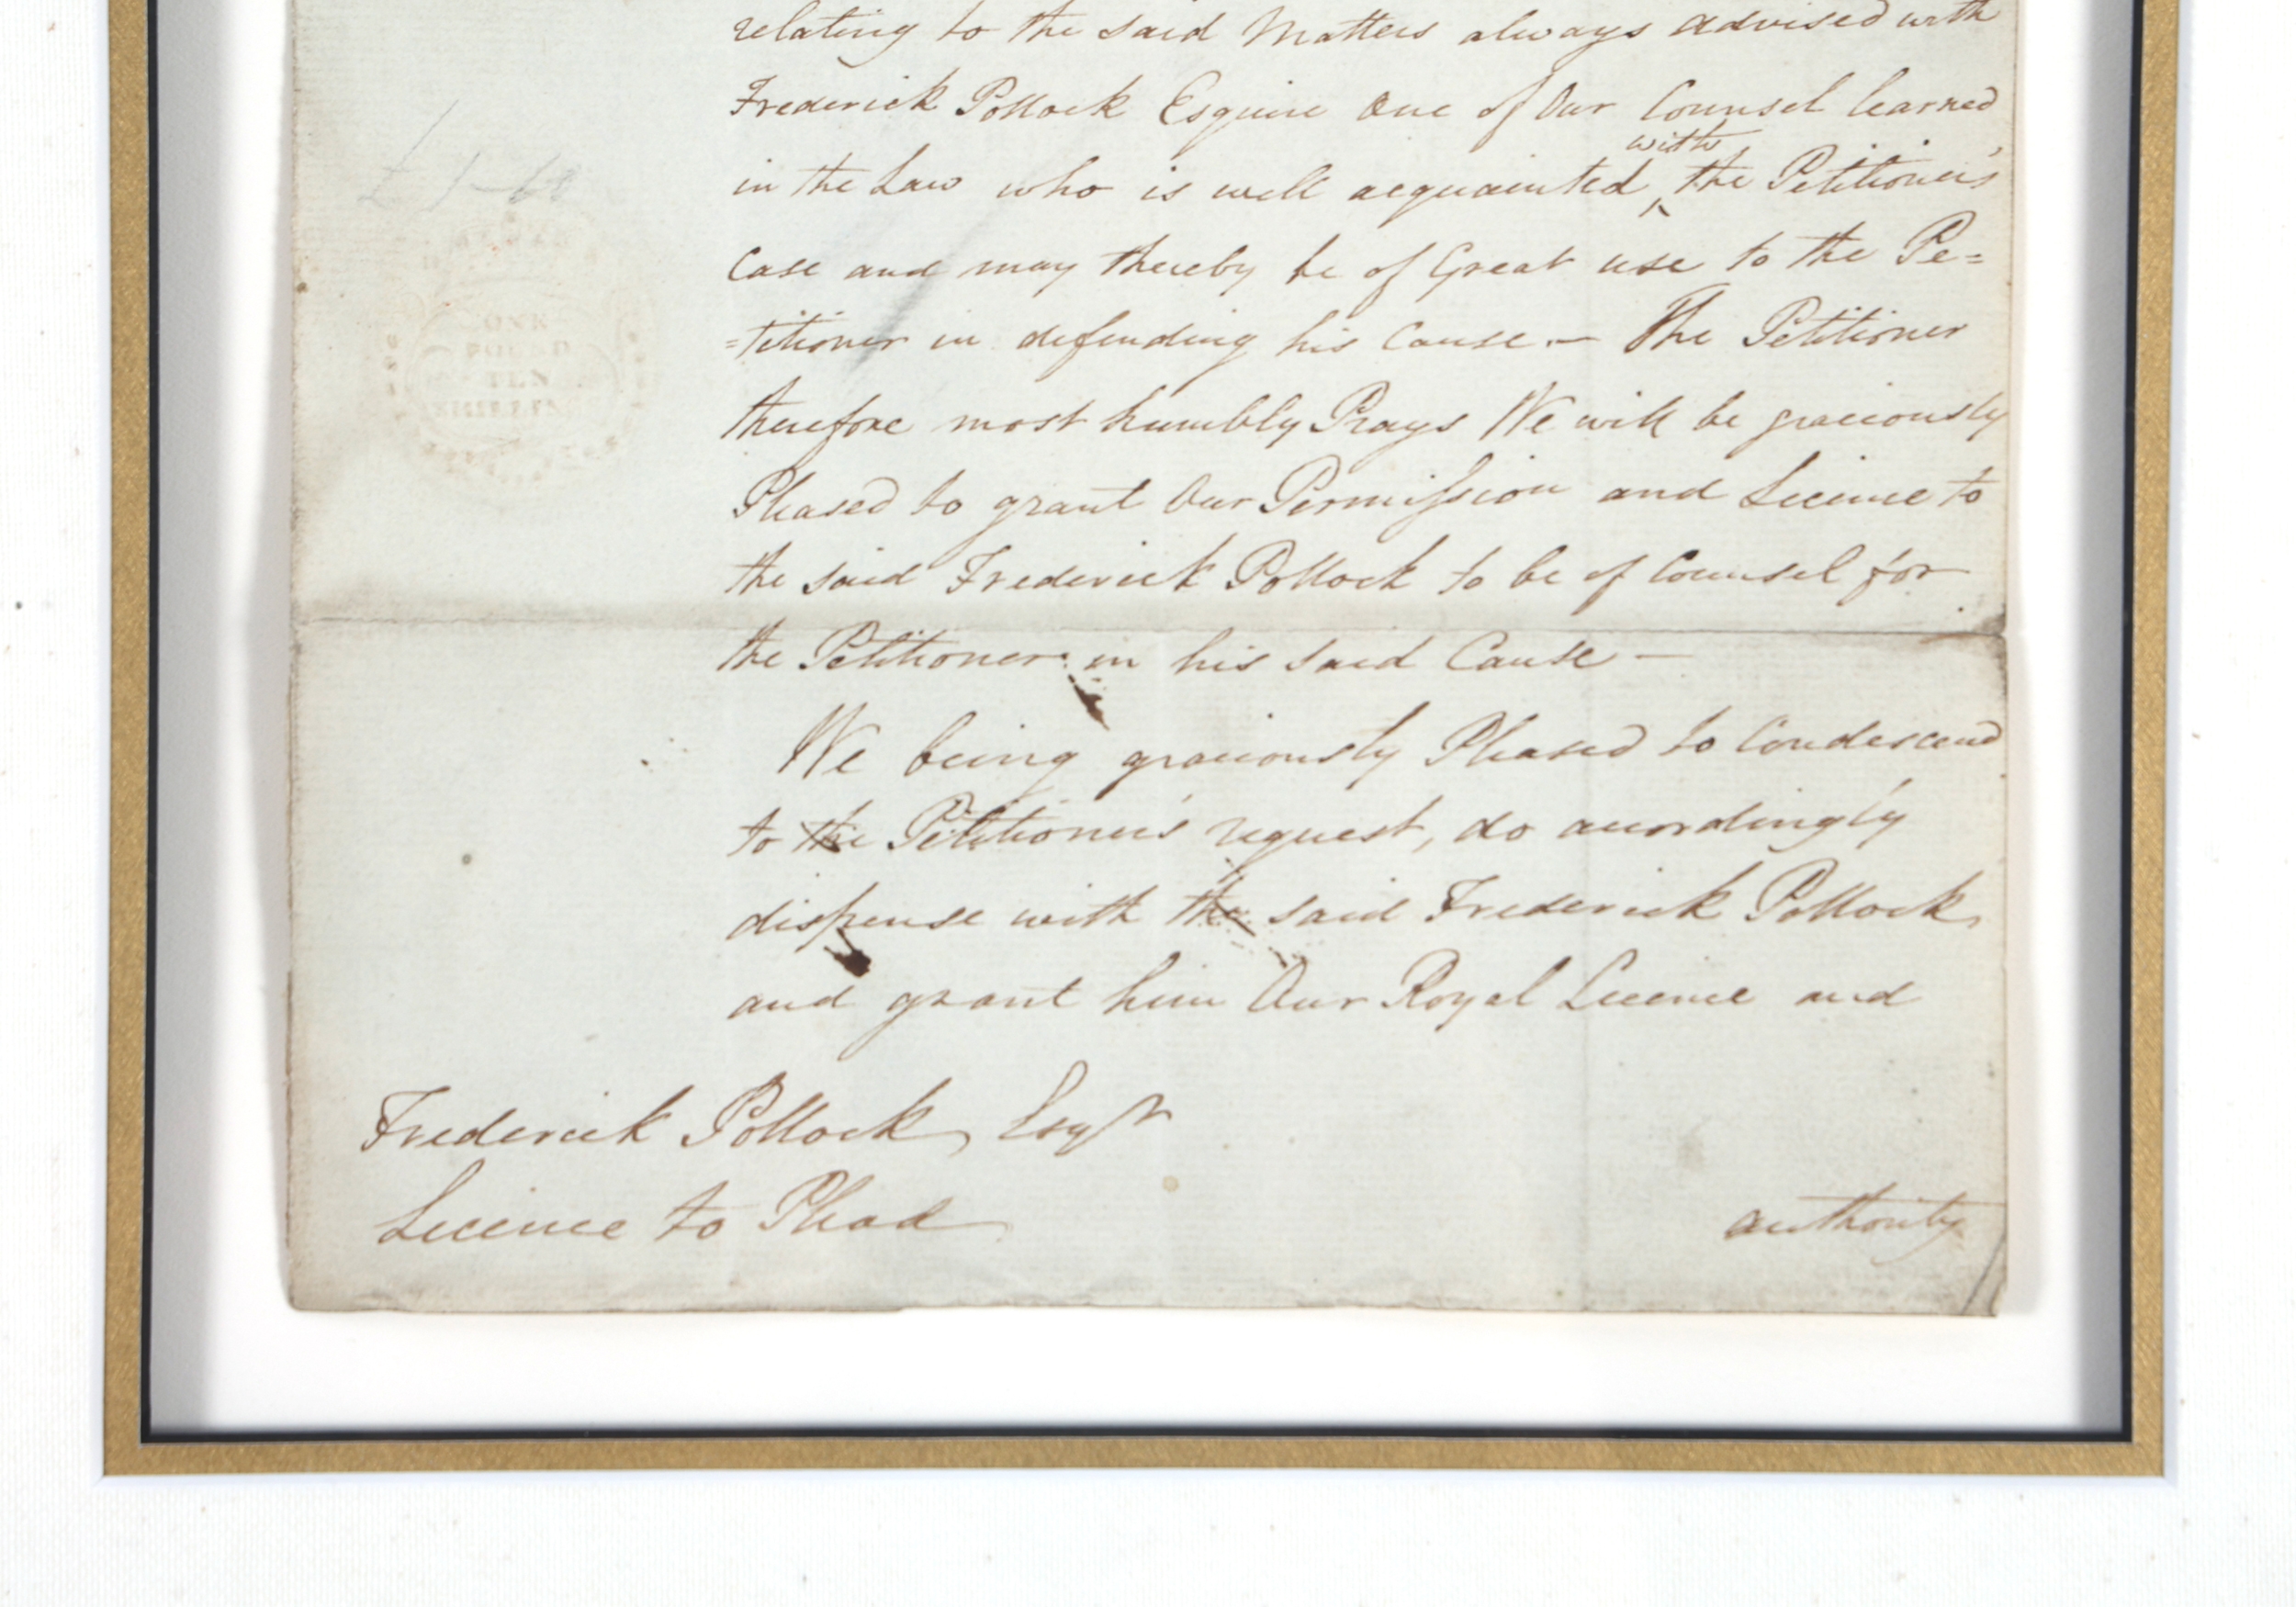 relating to the said Matters always advised with
Frederick Pollock Esquire One of Our Counsel learned
in the Law who is well acquainted with the Petitioner's
Case and may thereby be of Great use to the Pe=
=titioner in defending his Cause.— The Petitioner
therefore most humbly Prays We will be graciously
Pleased to grant Our Permission and Licence to
the said Frederick Pollock to be of Counsel for
the Petitioner in his said Cause —
We being graciously Pleased to Condescend
to the Petitioner's request, do accordingly
dispense with the said Frederick Pollock,
and grant him Our Royal Licence and
authority
Frederick Pollock, Esqr
Licence to Plead
ONE
POUND
TEN
SHILLING